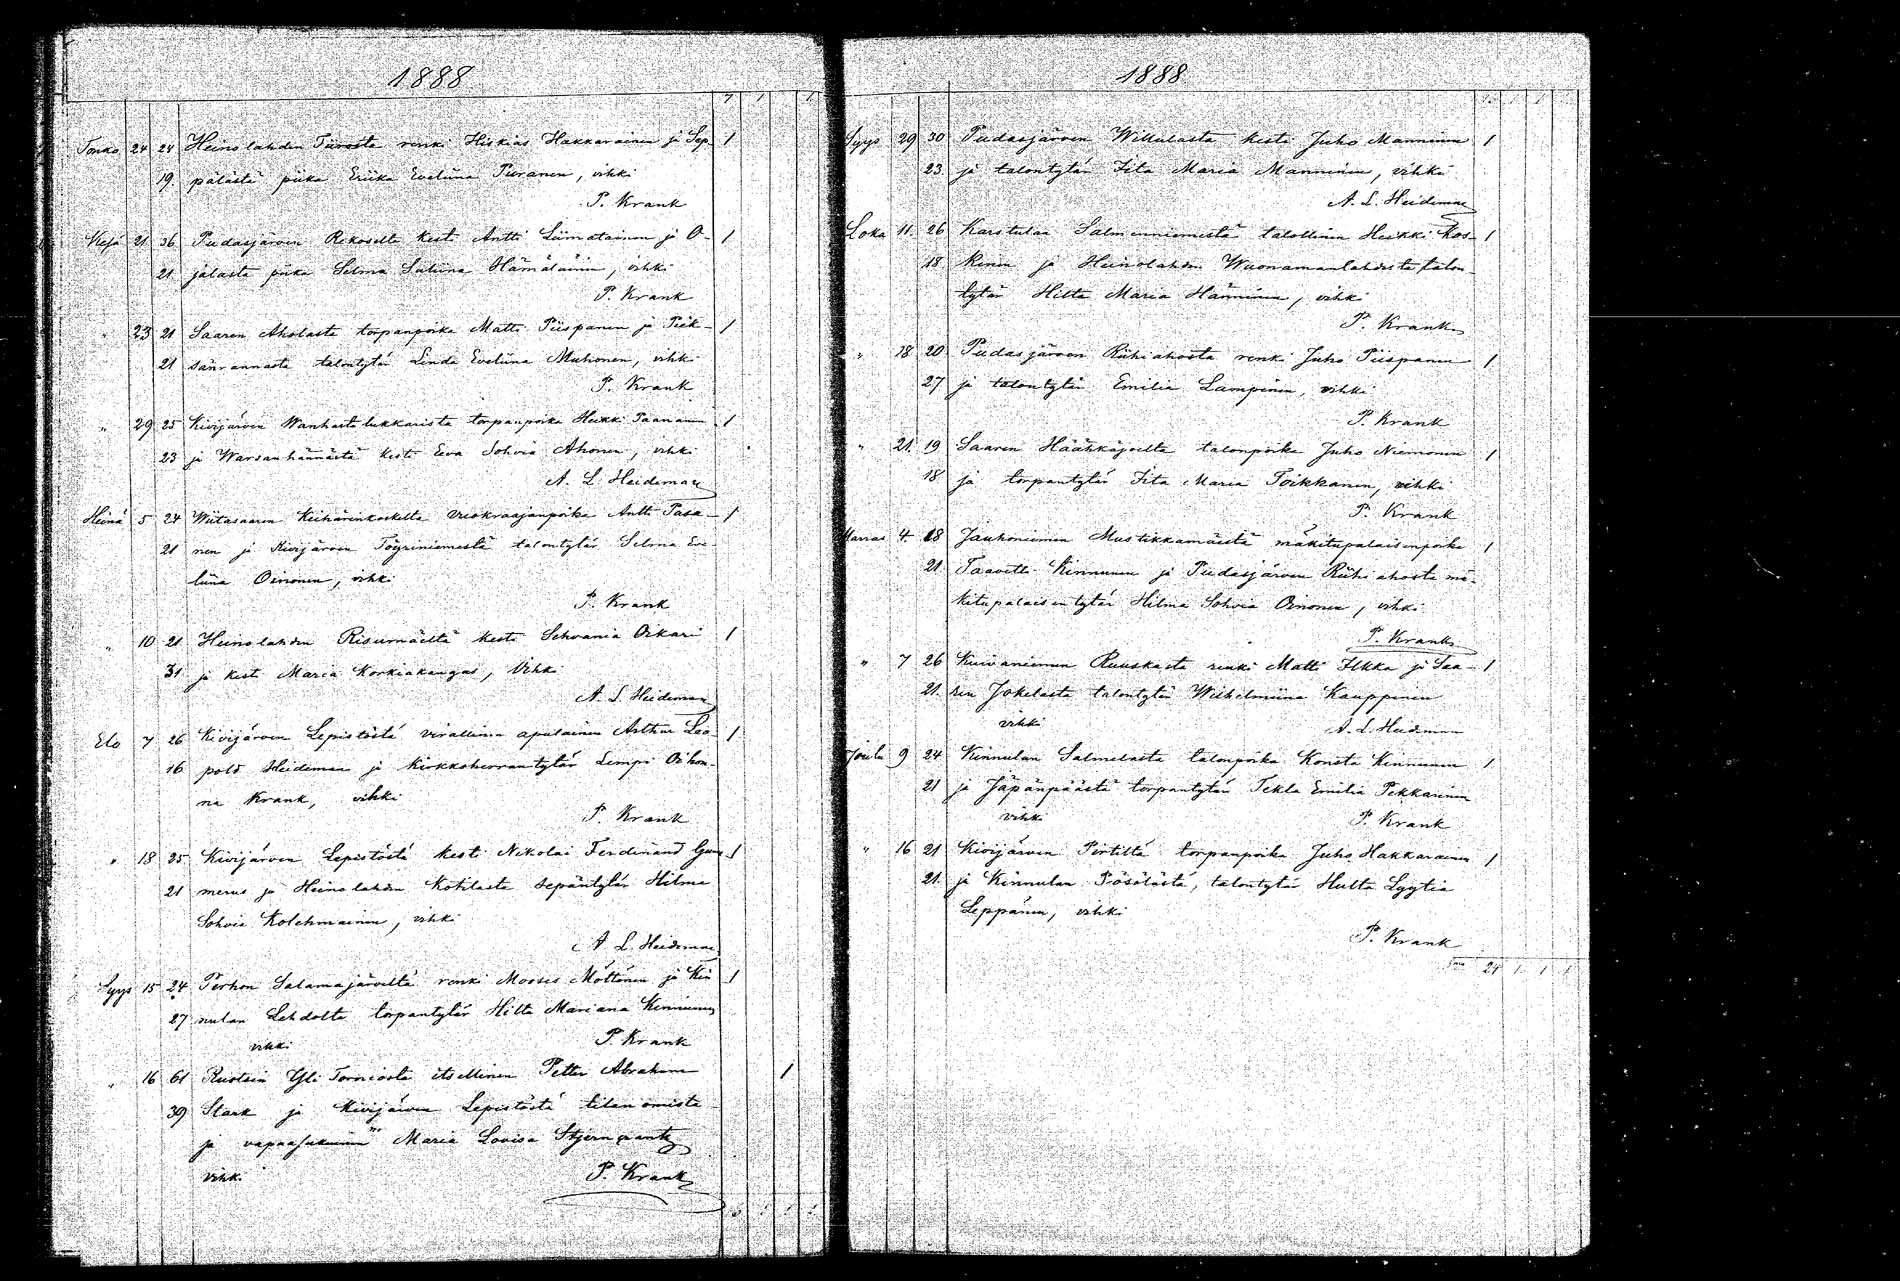 1888
7 1 1
Touko 24 24 Heinolahden Turosta renki Hiskias Hakkarainen ja Sep- 1
19. pälästä piika Eriika Eveliina Piiranen, vihki
P. Krank
Kesä 21 36 Pudasjärven Rekoselta kesti Antti Liimatainen ja O- 1
21 jalasta piika Selma Sutiina Hämäläinen, vihki
P. Krank
" 23 21 Saaren Aholasta torpanpoika Matti Piispanen ja Piek- 1
21 sänrannasta talontytär Linda Eveliina Muhonen, vihki
P. Krank
" 29 25 Kivijärven Wanhasta lukkarista torpanpoika Heikki Paananen 1
23 ja Warsanhännästä kesti Eeva Sohvia Ahonen, vihki
A. L. Heideman
Heinä 5 24 Wiitasaaren Keihärinkoskelta vuokraajanpoika Antti Pasa- 1
21 nen ja Kivijärven Töyriniemestä talontytär Selma Eve-
liina Oinonen, vihki
P. Krank
" 10 21 Heinolahden Risumäeltä kesti Sehvania Oikari 1
31 ja kesti Maria Korkiakangas, Vihki
A. L. Heideman
Elo 7 26 Kivijärven Lepistöstä virallinen apulainen Arthur Leo- 1
16 pold Heideman ja kirkkoherrantytär Lempi Oihon-
na Krank, vihki
P. Krank
" 18 25 Kivijärven Lepistöstä kesti Nikolai Ferdinand Gum- 1
21 merus ja Heinolahden Kotilasta sepäntytär Hilma
Sohvia Kolehmainen, vihki
A. L. Heideman
Syys 15 24 Perhon Salamajärveltä renki Mooses Möttönen ja Kin- 1
27 nulan Lehdolta torpantytär Hilta Mariana Kinnunen
vihki P. Krank
" 16 61 Ruotsin Yli Torniosta itsellinen Petter Abraham 1
39 Stark ja Kivijärven Lepistöstä tilan omista-
ja vapaasukuinen Maria Lovisa Stjerncrantz
vihki P. Krank
1888
Syys 29 30 Pudasjärven Willulasta kesti Juho Manninen 1
23 ja talontytär Fita Maria Manninen, vihki
A. L. Heideman
Loka 11. 26 Karstulan Salmenniemestä talollinen Heikki Kos- 1
18 kinen ja Heinolahden Wuonamanlahdesta talon-
tytär Hilta Maria Hänninen, vihki
P. Krank
" 18 20 Pudasjärven Riihiahosta renki Juho Piispanen 1
27 ja talontytär Emilia Lampinen, vihki
P. Krank
" 21. 19 Saaren Häähkäjoelta talonpoika Juho Niemonen 1
18 ja torpantytär Fita Maria Toikkanen, vihki
P. Krank
Marras 4. 18 Jauhoniemen Mustikkamäestä mäkitupalaisenpoika 1
21. Taavetti Kinnunen ja Pudasjärven Riihiahosta mä-
kitupalaisentytär Hilma Sohvia Oinonen, vihki
P. Krank
" 7 26 Kuivaniemen Ruuskasta renki Matti Ilkka ja Saa- 1
21. ren Jokelasta talontytär Wilhelmiina Kauppinen
vihki A. L. Heideman
Joulu 9 24 Kinnulan Salmelasta talonpoika Konsta Kinnunen 1
21 ja Jäpänpäästä torpantytär Tekla Emilia Pekkarinen
vihki P. Krank
" 16 21 Kivijärven Pirtiltä torpanpoika Juho Hakkarainen 1
21. ja Kinnulan Pösölästä, talontytär Hulta Lyytia
Leppänen, vihki
P. Krank
Sma 24 1 1 1